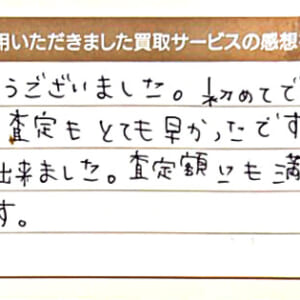 用いただきました買取サービスの感想
うございました。初めてで
査定もとても早かったです
出来ました。査定額にも満
す。